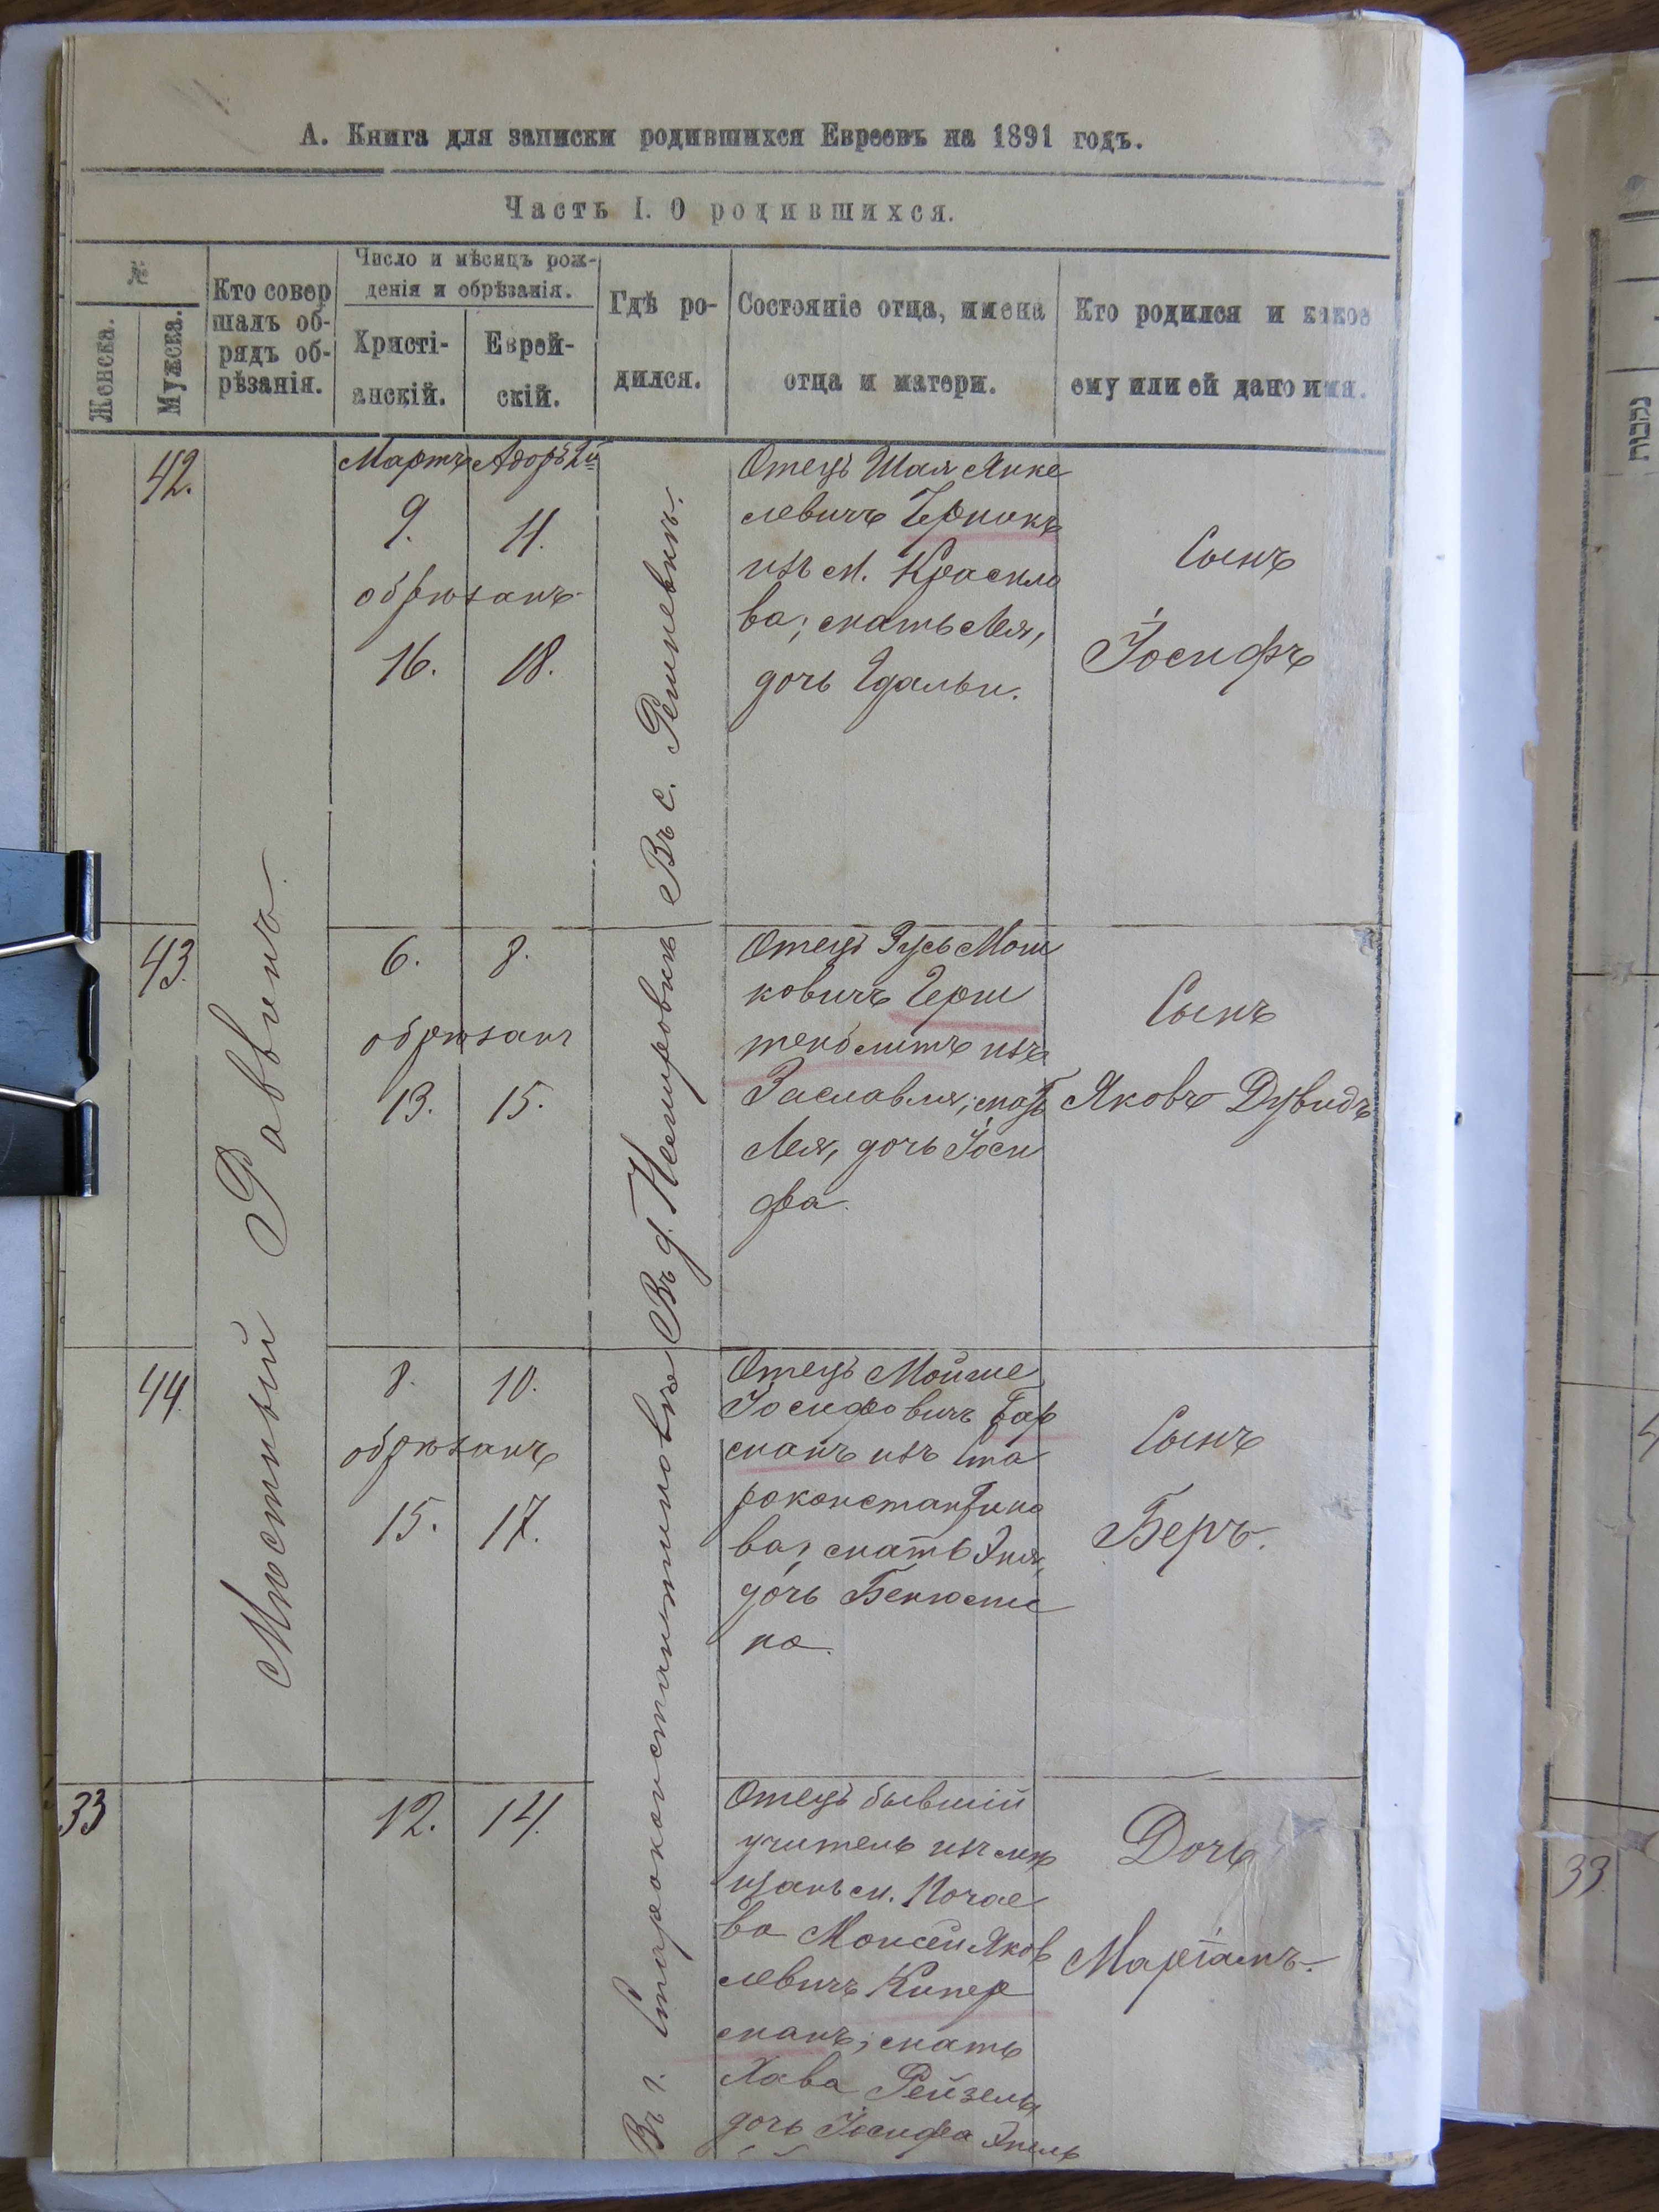 А. Книга для записки родившихся Евреевъ на 1891 годъ.
Часть I. О родившихся.
№
Женска.
Мужска.
Кто совер
шалъ об-
рядъ об-
рѣзанія.
Число и мѣсяцъ рож-
денія и обрѣзанія.
Христі-
анскій.
Еврей-
скій.
Гдѣ ро-
дился.
Состояніе отца, имена
отца и матери.
Кто родился и какое
ему или ей дано имя.
Мѣстный Раввинъ.
42.
Мартъ Адоръ 2й
9. 11.
обрѣзанъ
16. 18.
Въ с. Решневкѣ.
Отецъ Шая Янке
левичъ Чернокъ
изъ м. Красило
ва; мать Лея,
дочь Гдальи.
Сынъ
Іосифъ
43.
6. 8.
обрѣзанъ
13. 15.
Въ д. Немировкѣ
Отецъ Зусь Мош
ковичъ Герш
тенблитъ изъ
Заславля; мать
Лея, дочь Іоси
фа.
Сынъ
Яковъ Дувидъ
44.
8. 10.
обрѣзанъ
15. 17.
Въ г. Староконстантиновѣ
Отецъ Мойше
Іосифовичъ Гар
манъ изъ Ста
роконстантино
ва, мать Эня,
дочь Бенюми
на.
Сынъ
Беръ.
33
12. 14.
Отецъ бывшій
учитель изъ мѣ
щанъ м. Почае
ва Моисей Яков
левичъ Кипер
манъ; мать
Хава Рейзель
дочь Іосифа
Дочь
Маріамъ.
נמבות
33